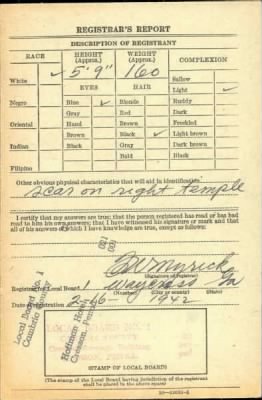 REGISTRAR'S REPORT
DESCRIPTION OF REGISTRANT
RACE HEIGHT (Approx.) WEIGHT (Approx.) COMPLEXION
White ✓ 5' 9" 160 Sallow
EYES HAIR Light ✓
Negro Blue ✓ Blonde Ruddy
Gray Red Dark
Oriental Hazel Brown Freckled
Brown Black ✓ Light brown
Indian Black Gray Dark brown
Bald Black
Filipino
Other obvious physical characteristics that will aid in identification
scar on right temple
I certify that my answers are true; that the person registered has read or has had
read to him his own answers; that I have witnessed his signature or mark and that
all of his answers of which I have knowledge are true, except as follows:
(Signature of registrar)
Registrar for Local Board 1 Waycross Ga
(Number) (City or county) (State)
Date of registration 2-16- 1942
Local Board No. 1
LOCAL BOARD NO. 1
STAMP OF LOCAL BOARD
(The stamp of the Local Board having jurisdiction of the registrant
shall be placed in the above space)